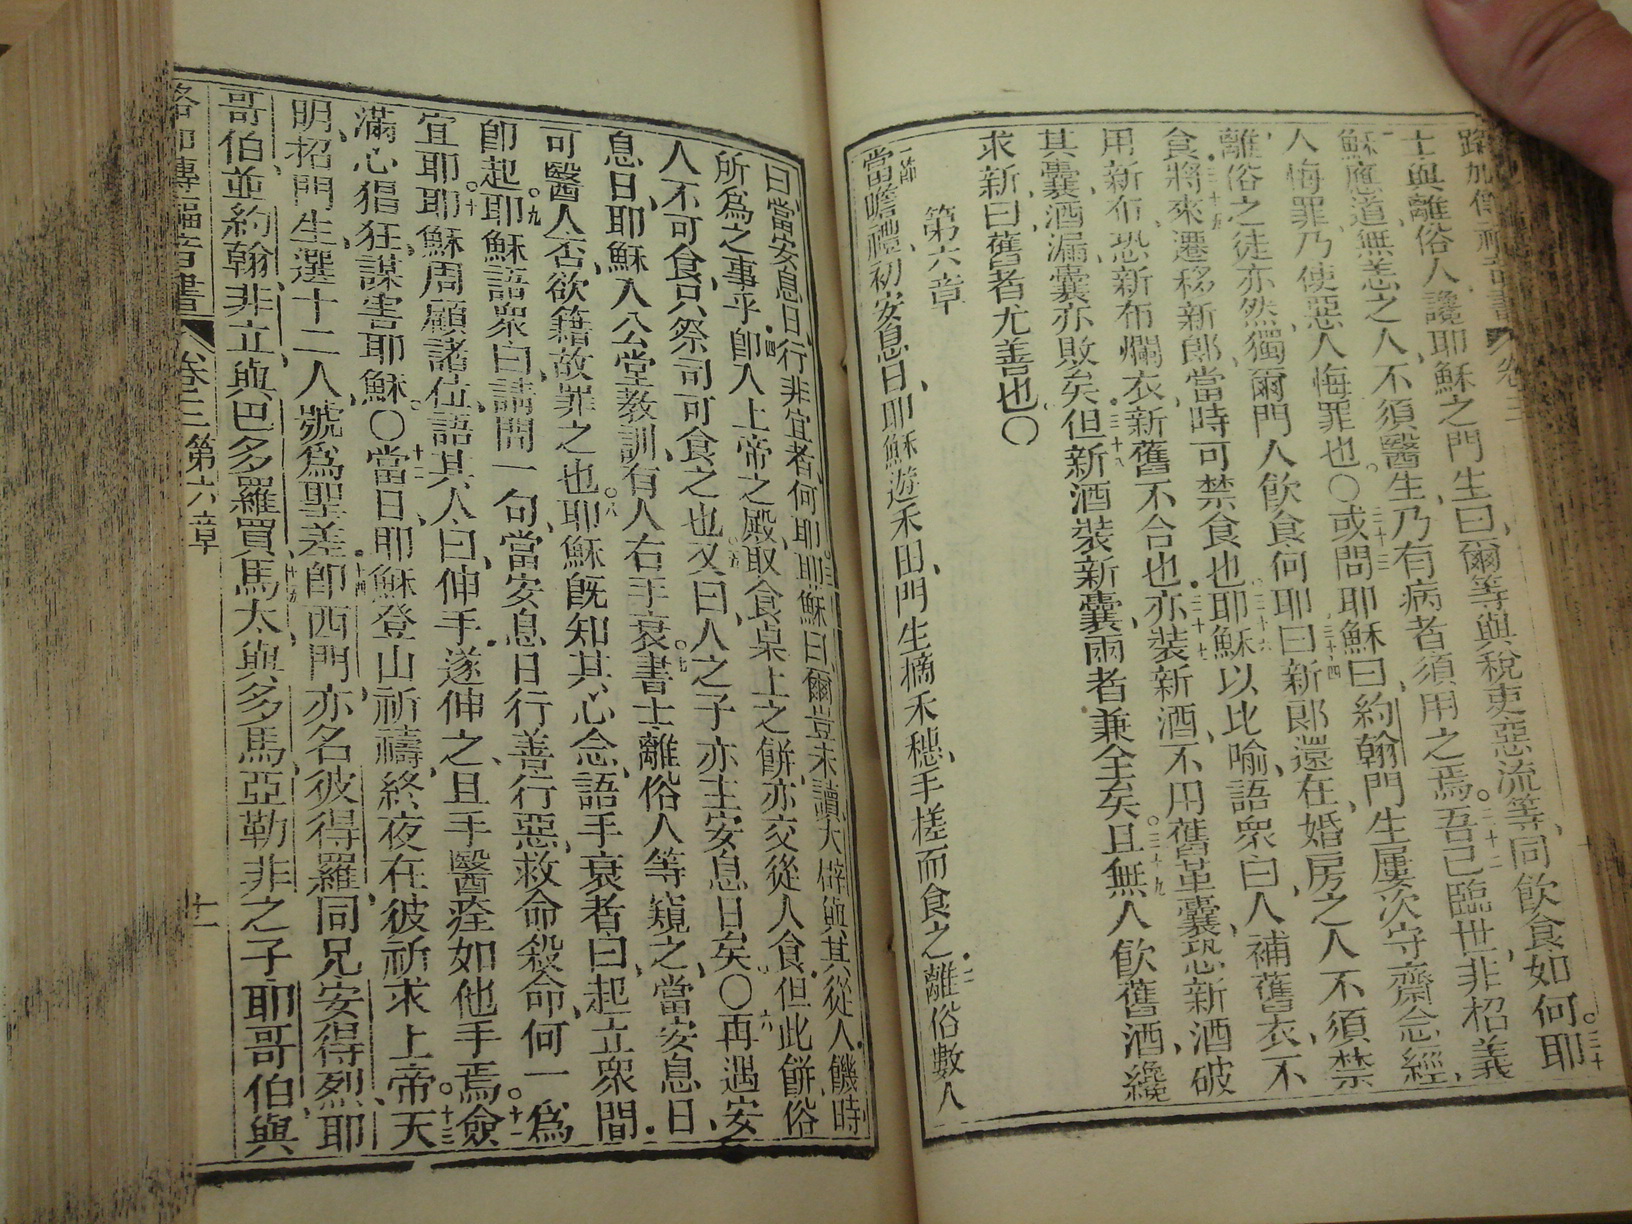 路加傳福音書 卷三
士與離俗人讒耶穌之門生曰爾等與稅吏惡流等同飲食如何耶
穌應道無恙之人不須醫生乃有病者須用之焉吾已臨世非招義
人悔罪乃使惡人悔罪也〇或問耶穌曰約翰門生屢次守齋念經
離俗之徒亦然獨爾門人飲食何耶曰新郎還在婚房之人不須禁
食將來遷移新郎當時可禁食也耶穌以比喻語眾曰人補舊衣不
用新布恐新布爛衣新舊不合也亦裝新酒不用舊革囊恐新酒破
其囊酒漏囊亦敗矣但新酒裝新囊兩者兼全矣且無人飲舊酒纔
求新曰舊者尤善也〇
第六章
一節當瞻禮初安息日耶穌遊禾田門生摘禾穗手搓而食之離俗數人
曰當安息日行非宜者何耶耶穌曰爾豈未讀大辟與其從人饑時
所為之事乎卽入上帝之殿取食桌上之餅亦交從人食但此餅俗
人不可食只祭司可食之也又曰人之子亦主安息日矣〇再遇安
息日耶穌入公堂教訓有人右手衰書士離俗人等窺之當安息日
可醫人否欲籍故罪之也耶穌旣知其心念語手衰者曰起立眾間
卽起耶穌語眾曰請問一句當安息日行善行惡救命殺命何一為
宜耶耶穌周顧諸位語其人曰伸手遂伸之且手醫痊如他手焉僉
滿心猖狂謀害耶穌〇當日耶穌登山祈禱終夜在彼祈求上帝天
明招門生選十二人號為聖差卽西門亦名彼得羅同兄安得烈耶
哥伯並約翰非立與巴多羅買馬太與多馬亞勒非之子耶哥伯與
路加傳福音書 卷三 第六章 十一